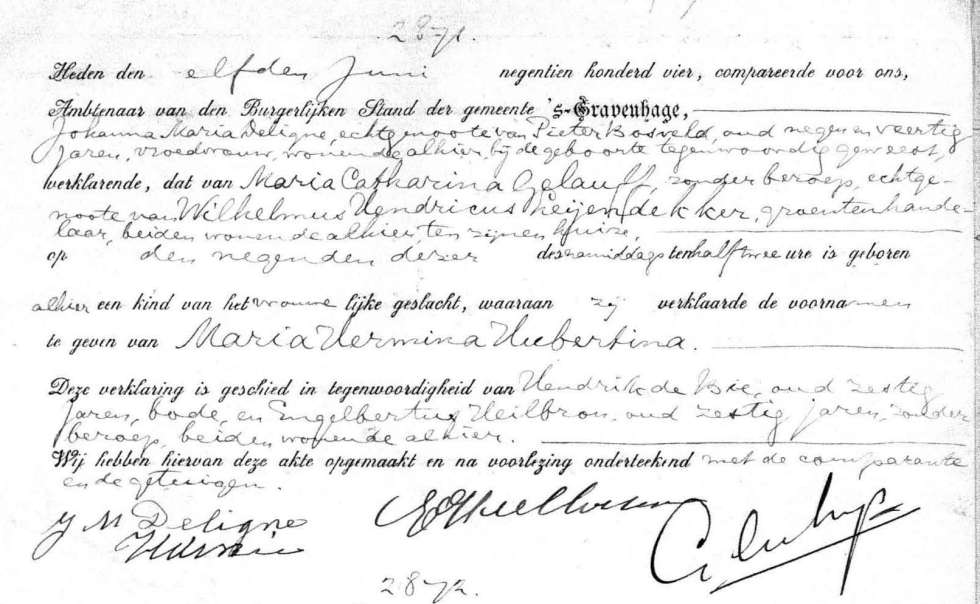 2871.
Heden den elfden Juni negentien honderd vier, compareerde voor ons,
Ambtenaar van den Burgerlijken Stand der gemeente 's-Gravenhage,
Johanna Maria Deligne, echtgenoote van Pieter Bosveld, oud negen en veertig
jaren, vroedvrouw, wonende alhier, bij de geboorte tegenwoordig geweest,
verklarende, dat van Maria Catharina Gelauff, zonder beroep, echtge-
noote van Wilhelmus Hendricus Heijendekker, groentenhande-
laar, beiden wonende alhier, ten zijnen huize,
op den negenden dezer des namiddags ten half twee ure is geboren
alhier een kind van het vrouwelijke geslacht, waaraan zij verklaarde de voornamen
te geven van Maria Hermina Hubertina.
Deze verklaring is geschied in tegenwoordigheid van Hendrik de Bie, oud zestig
jaren, bode, en Engelbertus Heilbron, oud zestig jaren, zonder
beroep, beiden wonende alhier.
Wij hebben hiervan deze akte opgemaakt en na voorlezing onderteekend met de comparante
en de getuigen.
J M Deligne
2872.